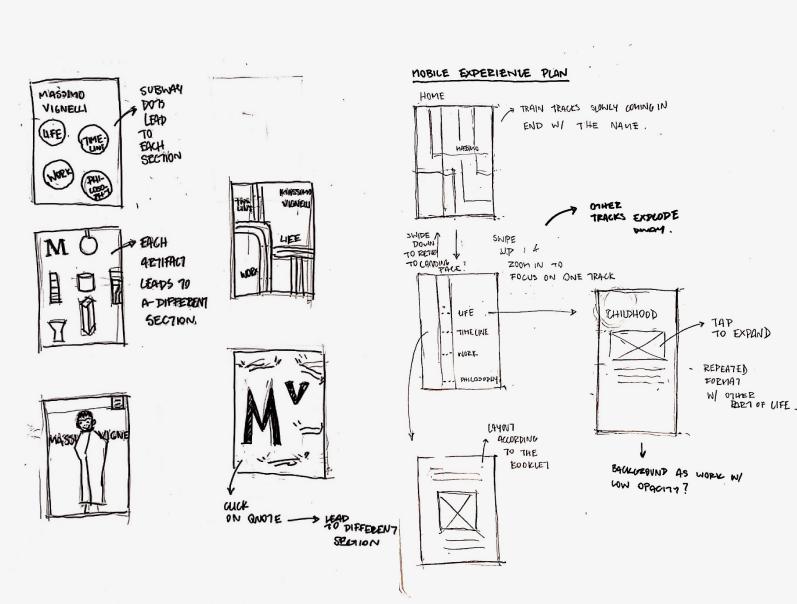 MASSIMO
VIGNELLI
LIFE
TIME-
LINE
WORK
PHI-
LOSO-
PHY
SUBWAY
DOTS
LEAD
TO
EACH
SECTION
M
EACH
ARTIFACT
LEADS TO
A DIFFERENT
SECTION.
MASSI VIGNE
TIME
LINE
MASSIMO
VIGNELLI
LIFE
WORK
MV
CLICK
ON QUOTE → LEAD
TO DIFFERENT
SECTION
MOBILE EXPERIENCE PLAN
HOME
MASSIMO
TRAIN TRACKS SLOWLY COMING IN
END W/ THE NAME.
SWIDE
DOWN
TO RETRY
TO LOADING
PAGE.
SWIPE
UP &
ZOOM IN TO
FOCUS ON ONE TRACK
OTHER
TRACKS EXPLODE
AWAY.
LIFE
TIMELINE
WORK
PHILOSOPHY
CHILDHOOD
TAP
TO EXPAND
REPEATED
FORMAT
W/ OTHER
PART OF LIFE.
BACKGROUND AS WORK W/
LOW OPACITY?
LAYOUT
ACCORDING
TO THE
BOOKLET